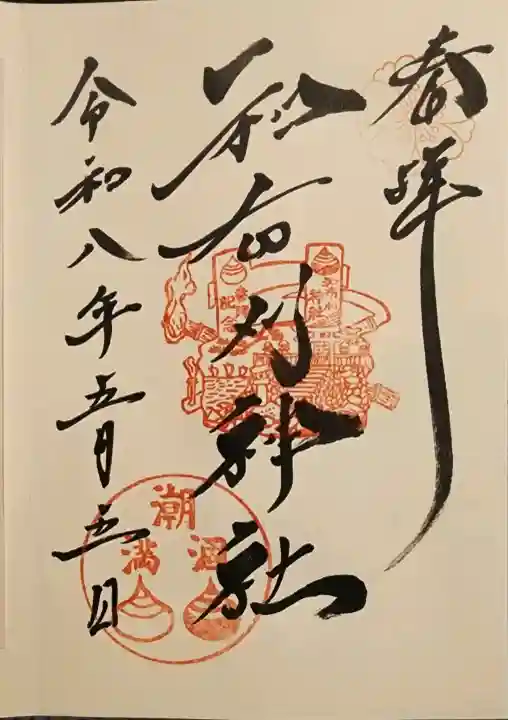 奉拝
和布刈神社
令和八年五月五日
潮
涸
満
記念